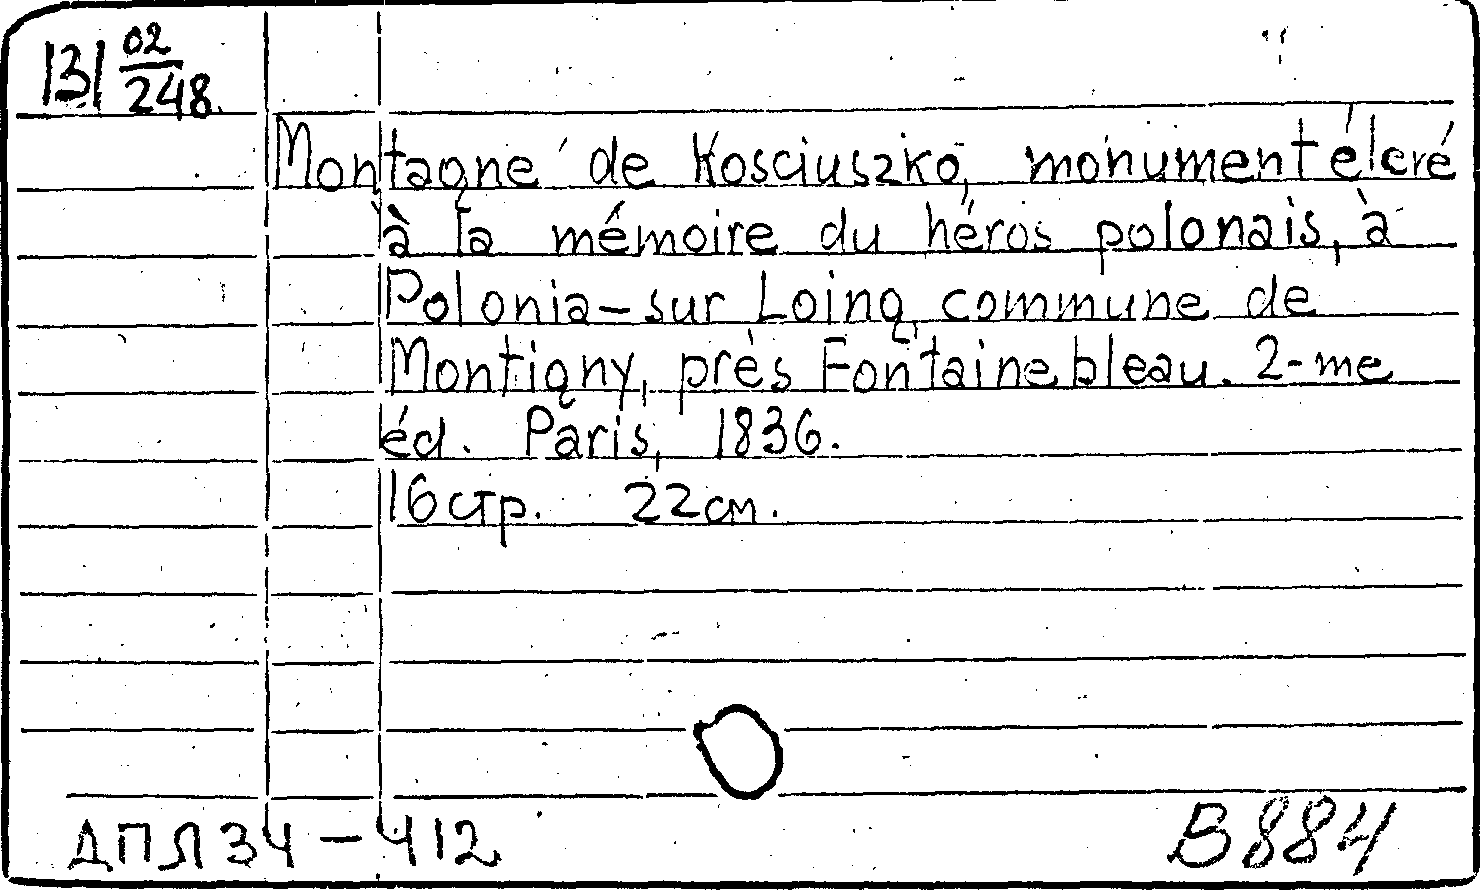 131 02/248.
Montagne de Kosciuszko, monument éleré
à la mémoire du héros polonais, à
Polonia-sur Loing, commune de
Montigny, près Fontainebleau. 2-me
éd. Paris, 1836.
16 стр. 22 см.
ДПЛ 34-412
B884